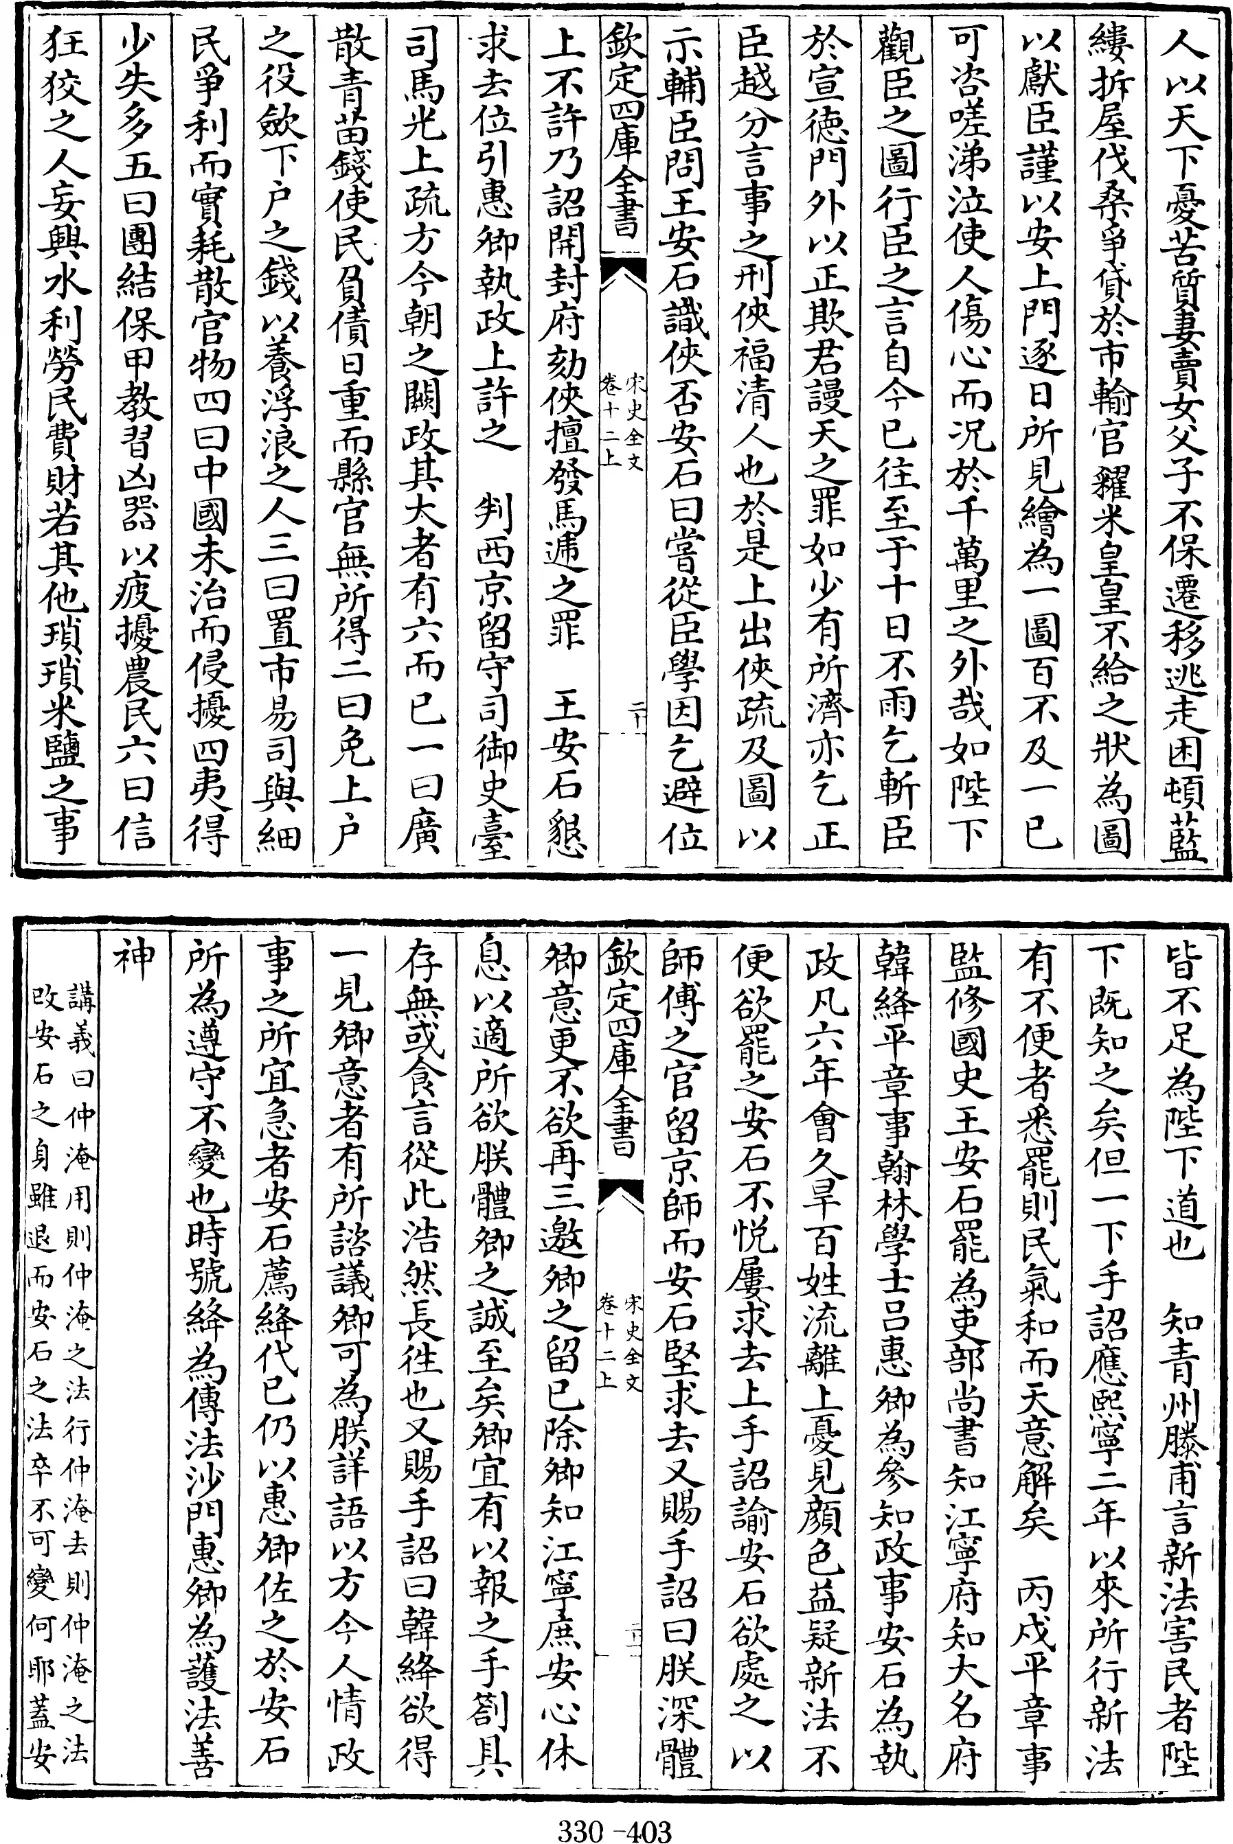 人以天下憂苦質妻賣女父子不保遷移逃走困頓藍
縷拆屋伐桑爭貸於市輸官糴米皇皇不給之狀為圖
以獻臣謹以安上門逐日所見繪為一圖百不及一已
可咨嗟涕泣使人傷心而況於千萬里之外哉如陛下
觀臣之圖行臣之言自今已往至于十日不雨乞斬臣
於宣徳門外以正欺君謾天之罪如少有所濟亦乞正
臣越分言事之刑俠福清人也於是上出俠疏及圖以
示輔臣問王安石識俠否安石曰嘗從臣學因乞避位
欽定四庫全書
宋史全文
卷十二上
二十
上不許乃詔開封府劾俠擅發馬遞之罪 王安石懇
求去位引惠卿執政上許之 判西京留守司御史臺
司馬光上疏方今朝之闕政其大者有六而已一曰廣
散青苗錢使民負債日重而縣官無所得二曰免上户
之役斂下户之錢以養浮浪之人三曰置市易司與細
民爭利而實耗散官物四曰中國未治而侵擾四夷得
少失多五曰團結保甲教習凶器以疲擾農民六曰信
狂狡之人妄興水利勞民費財若其他瑣瑣米鹽之事
皆不足為陛下道也 知青州滕甫言新法害民者陛
下既知之矣但一下手詔應熙寧二年以來所行新法
有不便者悉罷則民氣和而天意解矣 丙戍平章事
監修國史王安石罷為吏部尚書知江寧府知大名府
韓絳平章事翰林學士吕惠卿為參知政事安石為執
政凡六年會久旱百姓流離上憂見顔色益疑新法不
便欲罷之安石不悦屢求去上手詔諭安石欲處之以
師傅之官留京師而安石堅求去又賜手詔曰朕深體
欽定四庫全書
宋史全文
卷十二上
卿意更不欲再三邀卿之留已除卿知江寧庶安心休
息以適所欲朕體卿之誠至矣卿宜有以報之手劄具
存無或食言從此浩然長徃也又賜手詔曰韓絳欲得
一見卿意者有所諮議卿可為朕詳語以方今人情政
事之所宜急者安石薦絳代已仍以惠卿佐之於安石
所為遵守不變也時號絳為傳法沙門惠卿為護法善
神
講義曰仲淹用則仲淹之法行仲淹去則仲淹之法
改安石之身雖退而安石之法卒不可變何耶蓋安
330-403